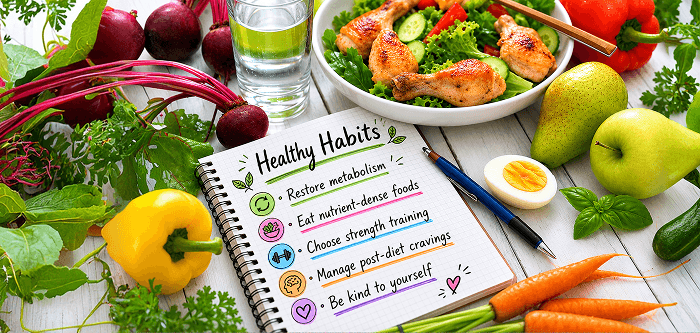 Healthy Habits
Restore metabolism
Eat nutrient-dense foods
Choose strength training
Manage post-diet cravings
Be kind to yourself